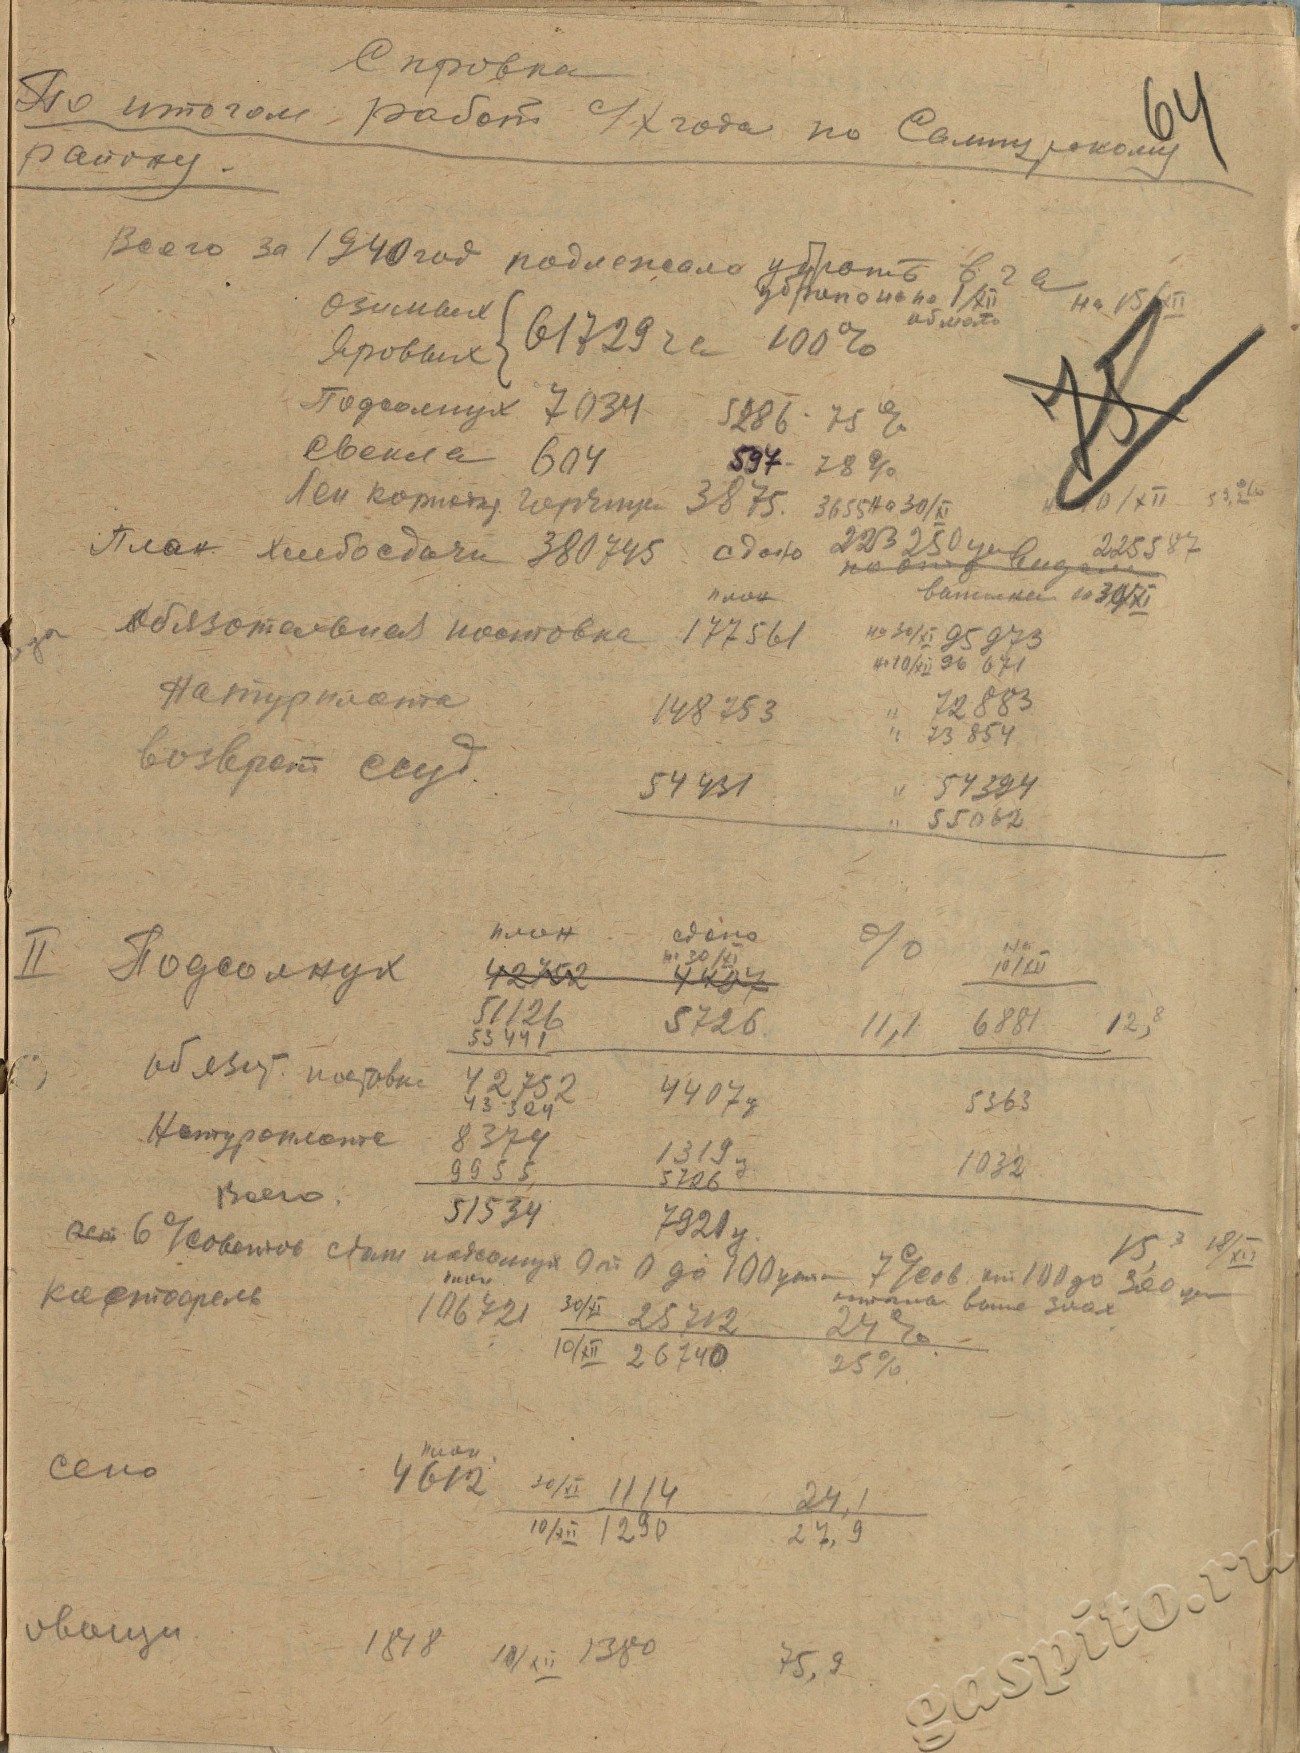 Справка
64
По итогам работ с/х года по Сампурскому
району.
Всего за 1940 год подлежало убрать в га
убрано на 1/XII на 15/XII
озимых
Яровых } 61729 га 100%
75
Подсолнух 7034 5286 - 75%
свекла 604 597 - 78%
Лен горчица 3875. 3655 на 30/XI 10/XII
План хлебосдачи 380745 сдано 223250 цн 225587
план на 30/XI
за Обязательная поставка 177561 на 30/XI 95973
на 10/XII 96 671
Натурплата 148753 " 72883
" 73854
возврат ссуд. 54431 " 54394
" 55062
план сдано % на
II Подсолнух 42752 на 30/XI 4407 10/XII
51126 5726 11,1 6881 12,8
53441
обязат. поставка 42752 4407 ц 5363
43 304
Натуроплата 8374 1319 ц 1032
9955 5726
Всего. 51534 7921 ц.
15,3 18/XII
6 %советов сдали подсолнух от 0 до 100 7 %сов. от 100 до 300
план
картофель 106721 30/XI 25712 24%
10/XII 26740 25%
план
сено 4612 30/XI 1114 24,1
10/XII 1290 27,9
овощи 1818 10/XII 1380 75,9
gaspito.ru